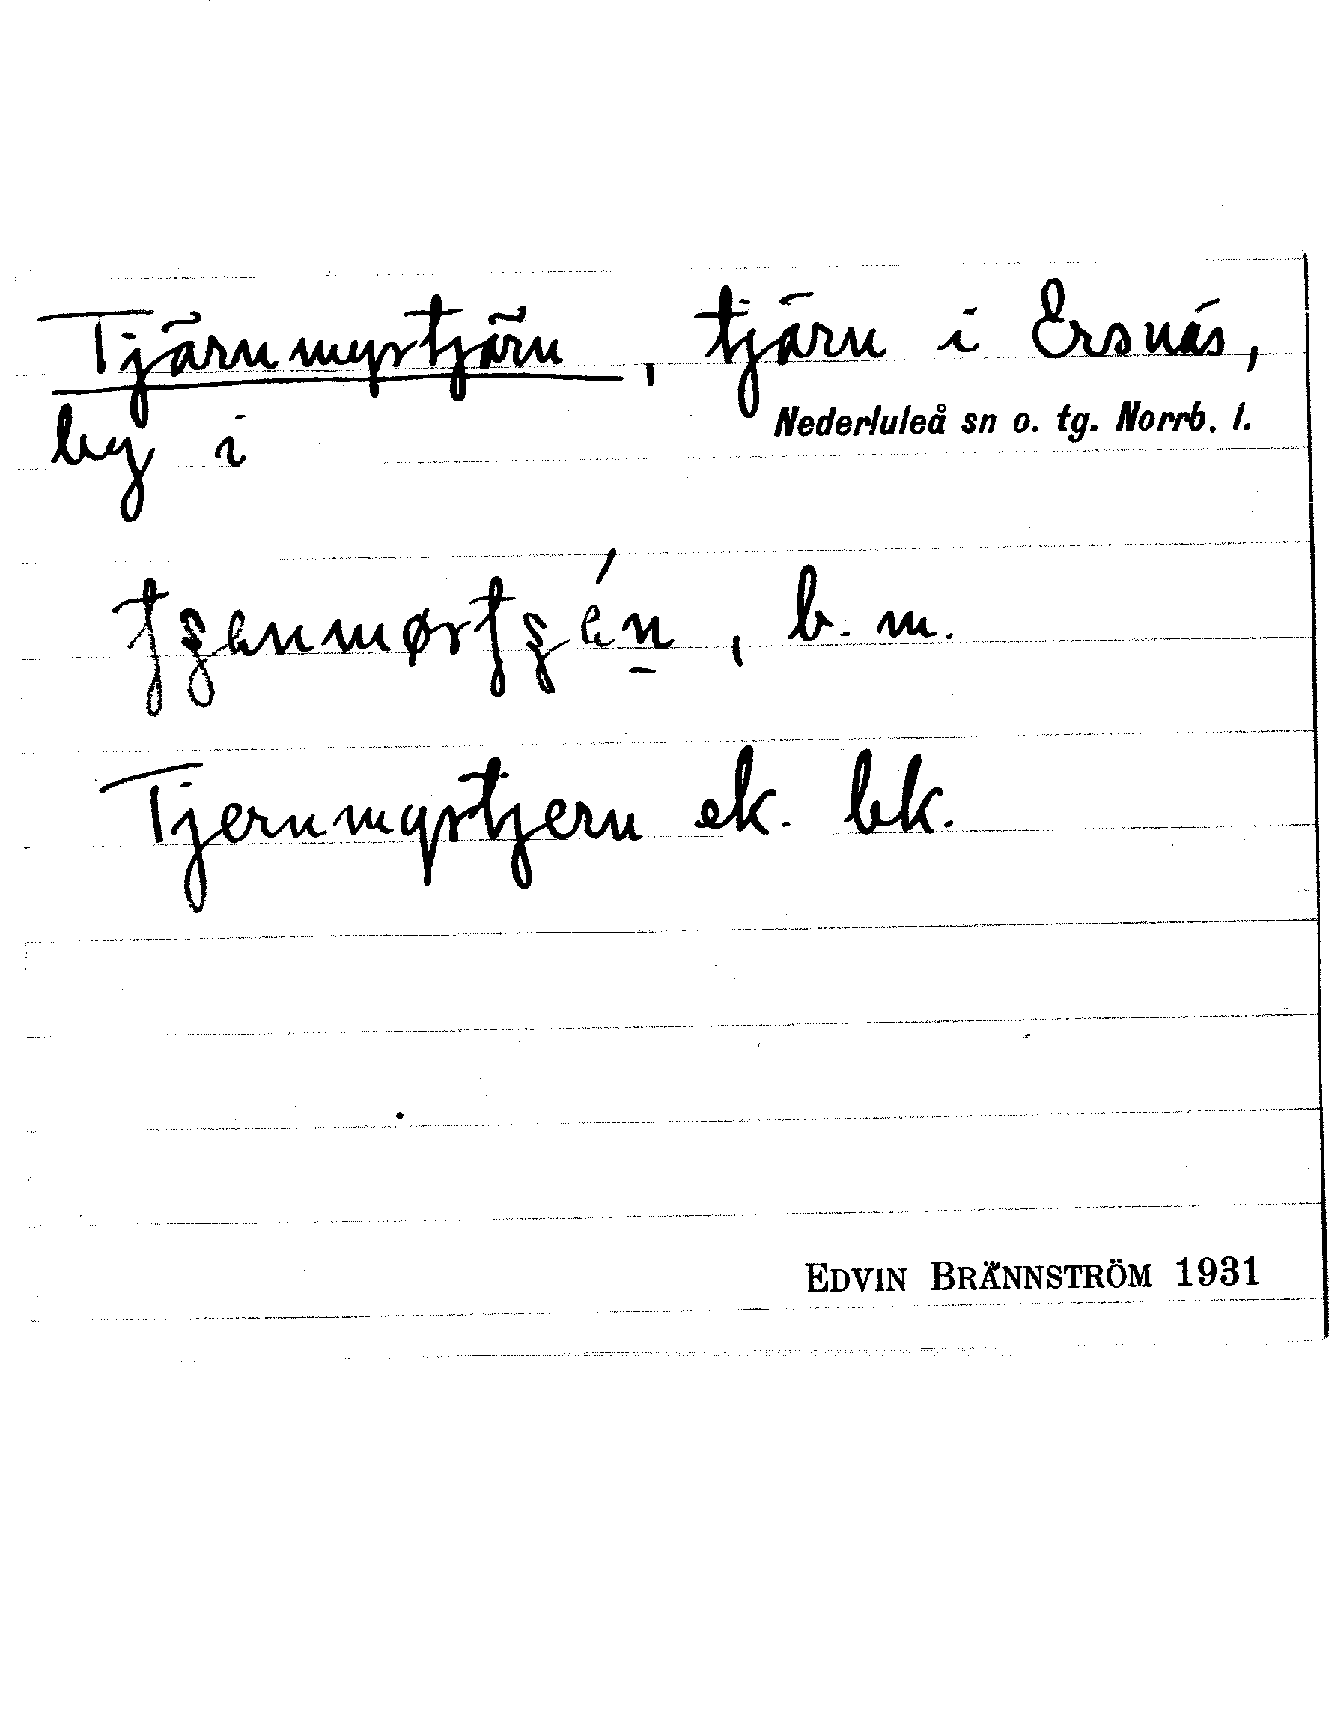 Tjärnmyrtjärn, tjärn i Ersnäs,
by i Nederluleå sn o. tg. Norrb. l.
, b. m.
Tjernmyrtjern ek. bk.
EDVIN BRÄNNSTRÖM 1931